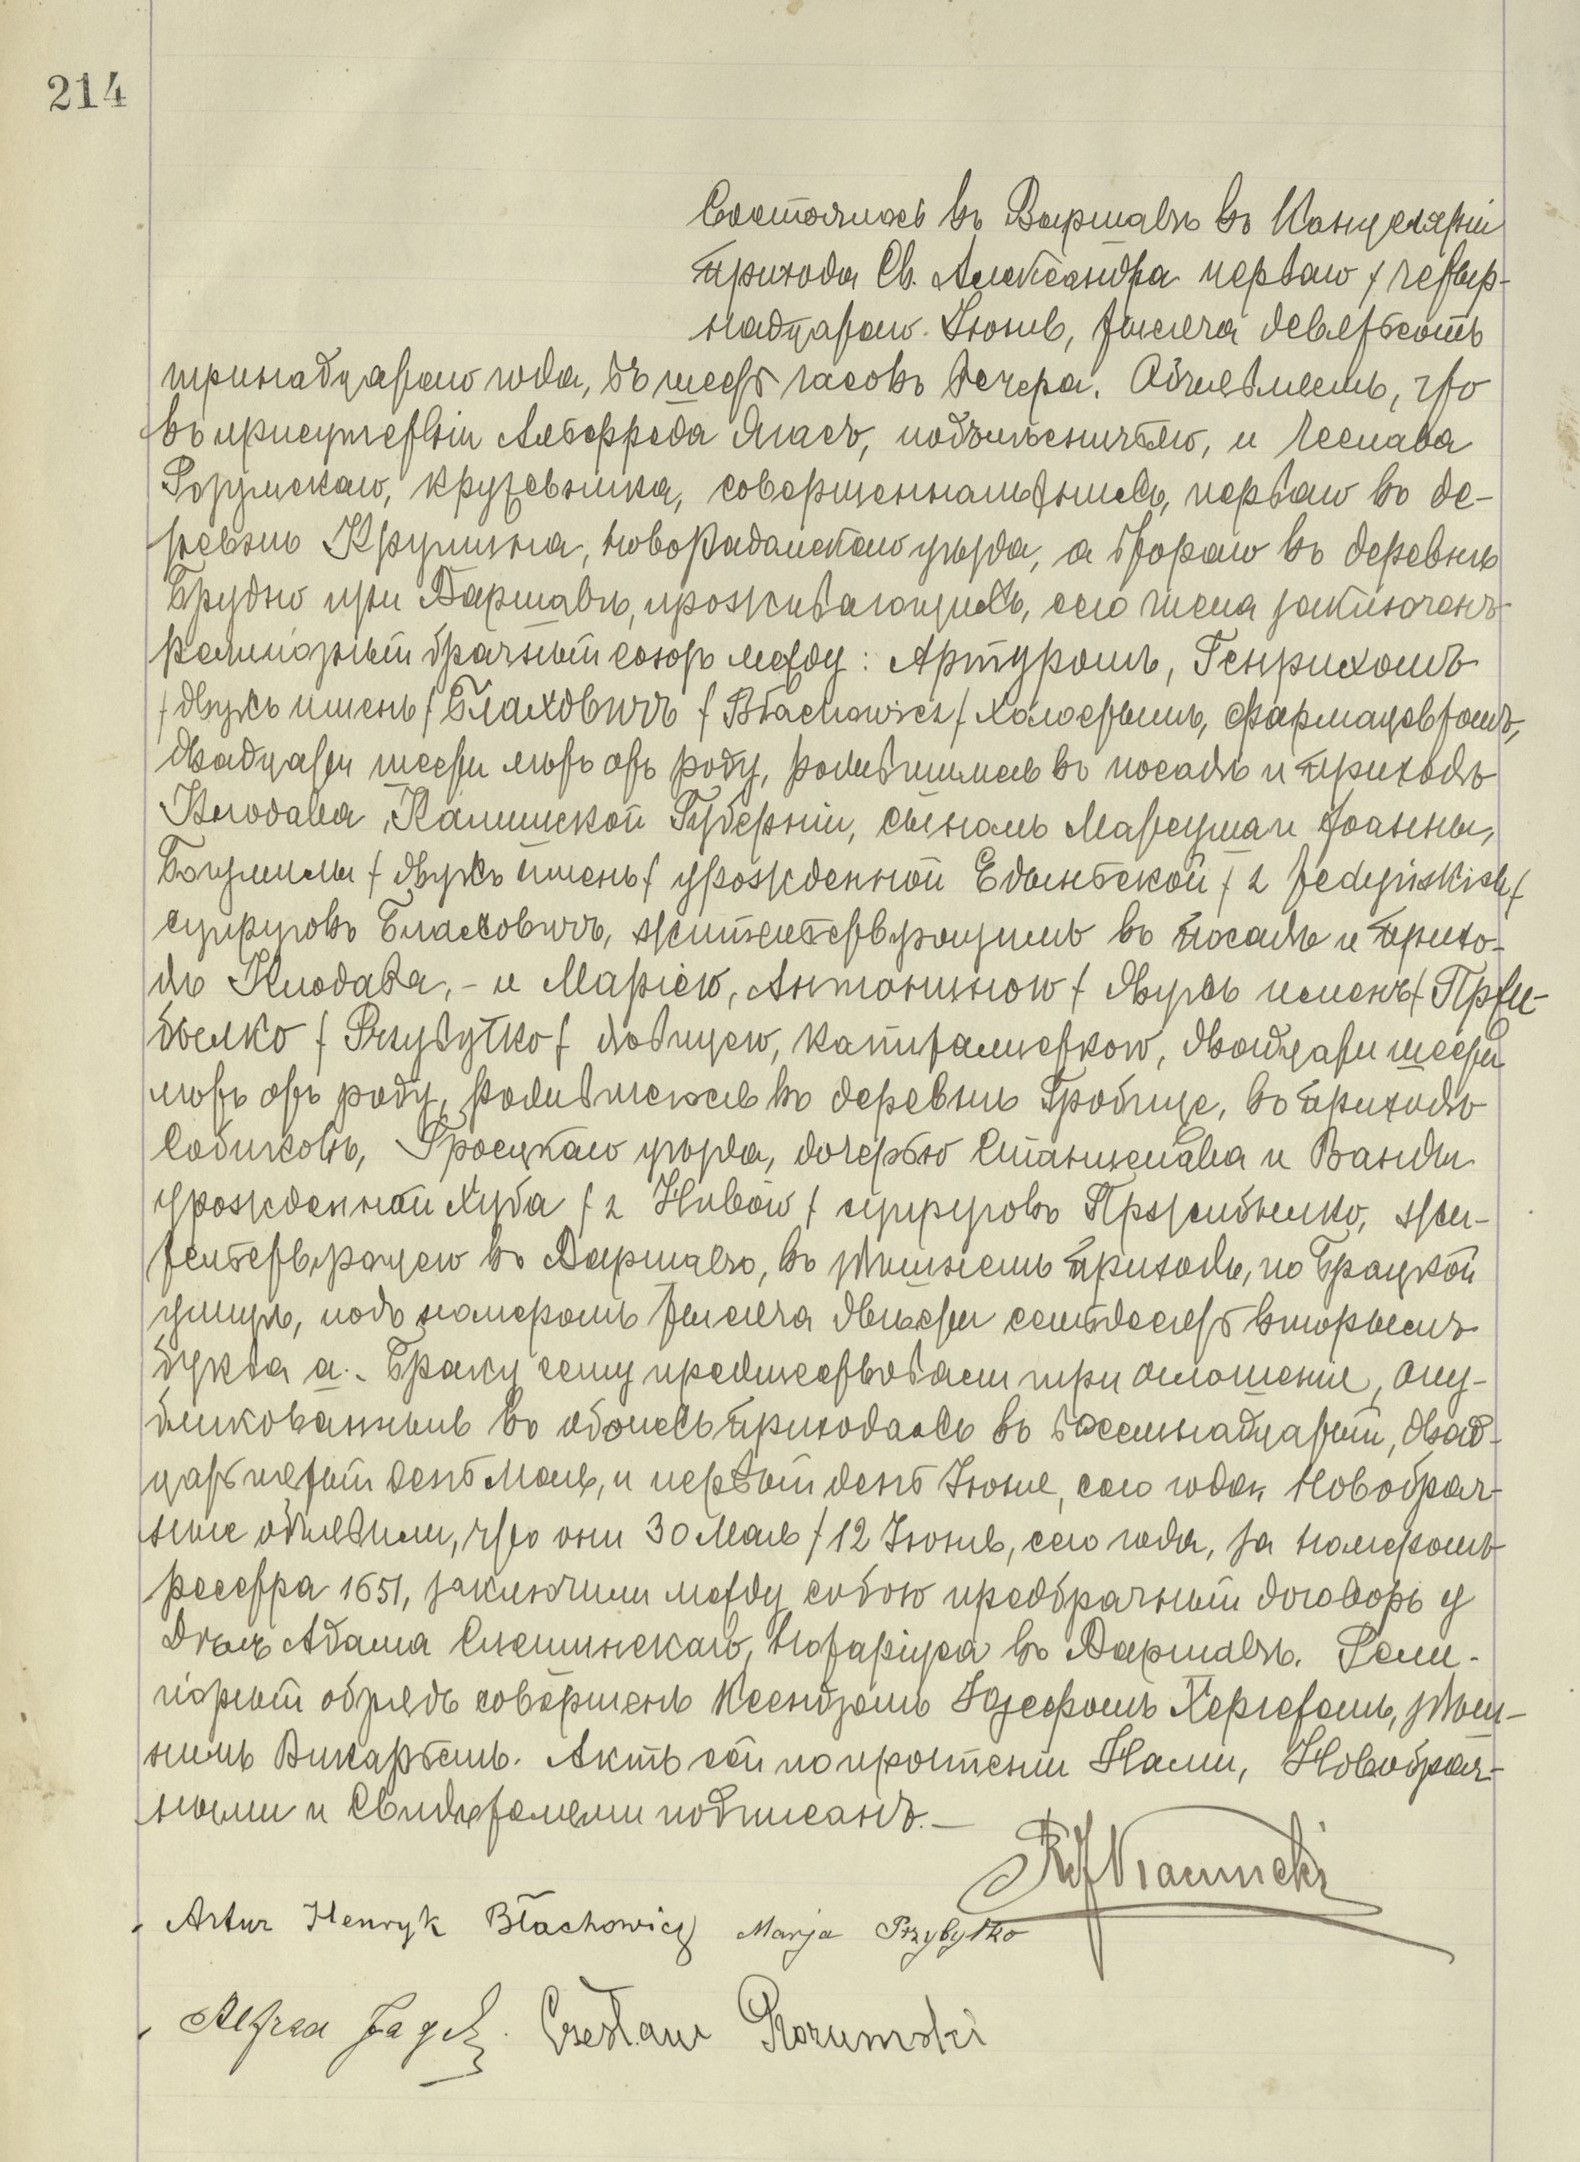 214
Состоялось въ Варшавѣ въ Канцеляріи
прихода Св. Александра перваго / четыр-
надцатаго Іюня, тысяча девятьсотъ
тринадцатаго года, въ шесть часовъ вечера. Объявляемъ, что
въ присутствіи Альфреда Ягас, подъмѣсничаго, и Чеслава
Розумскаго, кружевника, совершеннолѣтнихъ, перваго въ де-
ревнѣ Крушина, новорадомскаго уѣзда, а втораго въ деревнѣ
Брудно при Варшавѣ, проживающихъ, сего числа заключенъ
религіозный брачный союзъ между: Артуромъ, Генрихомъ
/ двухъ именъ / Блаховичъ / Błachowicz / холостымъ, фармацевтомъ,
двадцати шести лѣтъ отъ роду, родившимся въ посадѣ и приходѣ
Клодава, Калишской Губерніи, сыномъ Матеуша и Іоанны,
Богумилы / двухъ именъ / урожденной Едынской / z Jedyńskich /
супруговъ Блаховичъ, жительствующимъ въ посадѣ и прихо-
дѣ Клодава, - и Маріею, Антониною / двухъ именъ / Пржи-
былко / Przybyłko / дѣвицею, капиталисткою, двадцати шести
лѣтъ отъ роду, родившеюся въ деревнѣ Гробице, въ приходѣ
Собиковъ, Гроецкаго уѣзда, дочерью Станислава и Ванды
урожденной Хуба / z Hubów / супруговъ Пржибылко, жи-
тельствующею въ Варшавѣ, въ здѣшнемъ приходѣ, по Брацкой
улицѣ, подъ номеромъ тысяча двѣсти семьдесятъ вторымъ
буква а. - Браку сему предшествовали три оглашенія, опу-
бликованныя въ обоихъ приходахъ въ восемнадцатый, двад-
цать пятый день Мая, и первый день Іюня, сего года. Новобрач-
ные объявили, что они 30 Мая / 12 Іюня, сего года, за номеромъ
реестра 1651, заключили между собою предбрачный договоръ у
дѣлъ Адама Слешинскаго, Нотаріуса въ Варшавѣ. Рели-
гіозный обрядъ совершенъ Ксендзомъ Юзефомъ Хергетомъ, здѣш-
нимъ Викаріемъ. Актъ сей по прочтеніи Нами, Новобрач-
ными и Свидѣтелями подписанъ. —
Artur Henryk Błachowicz Marja Przybyłko
Alfred Czesław Rozumski